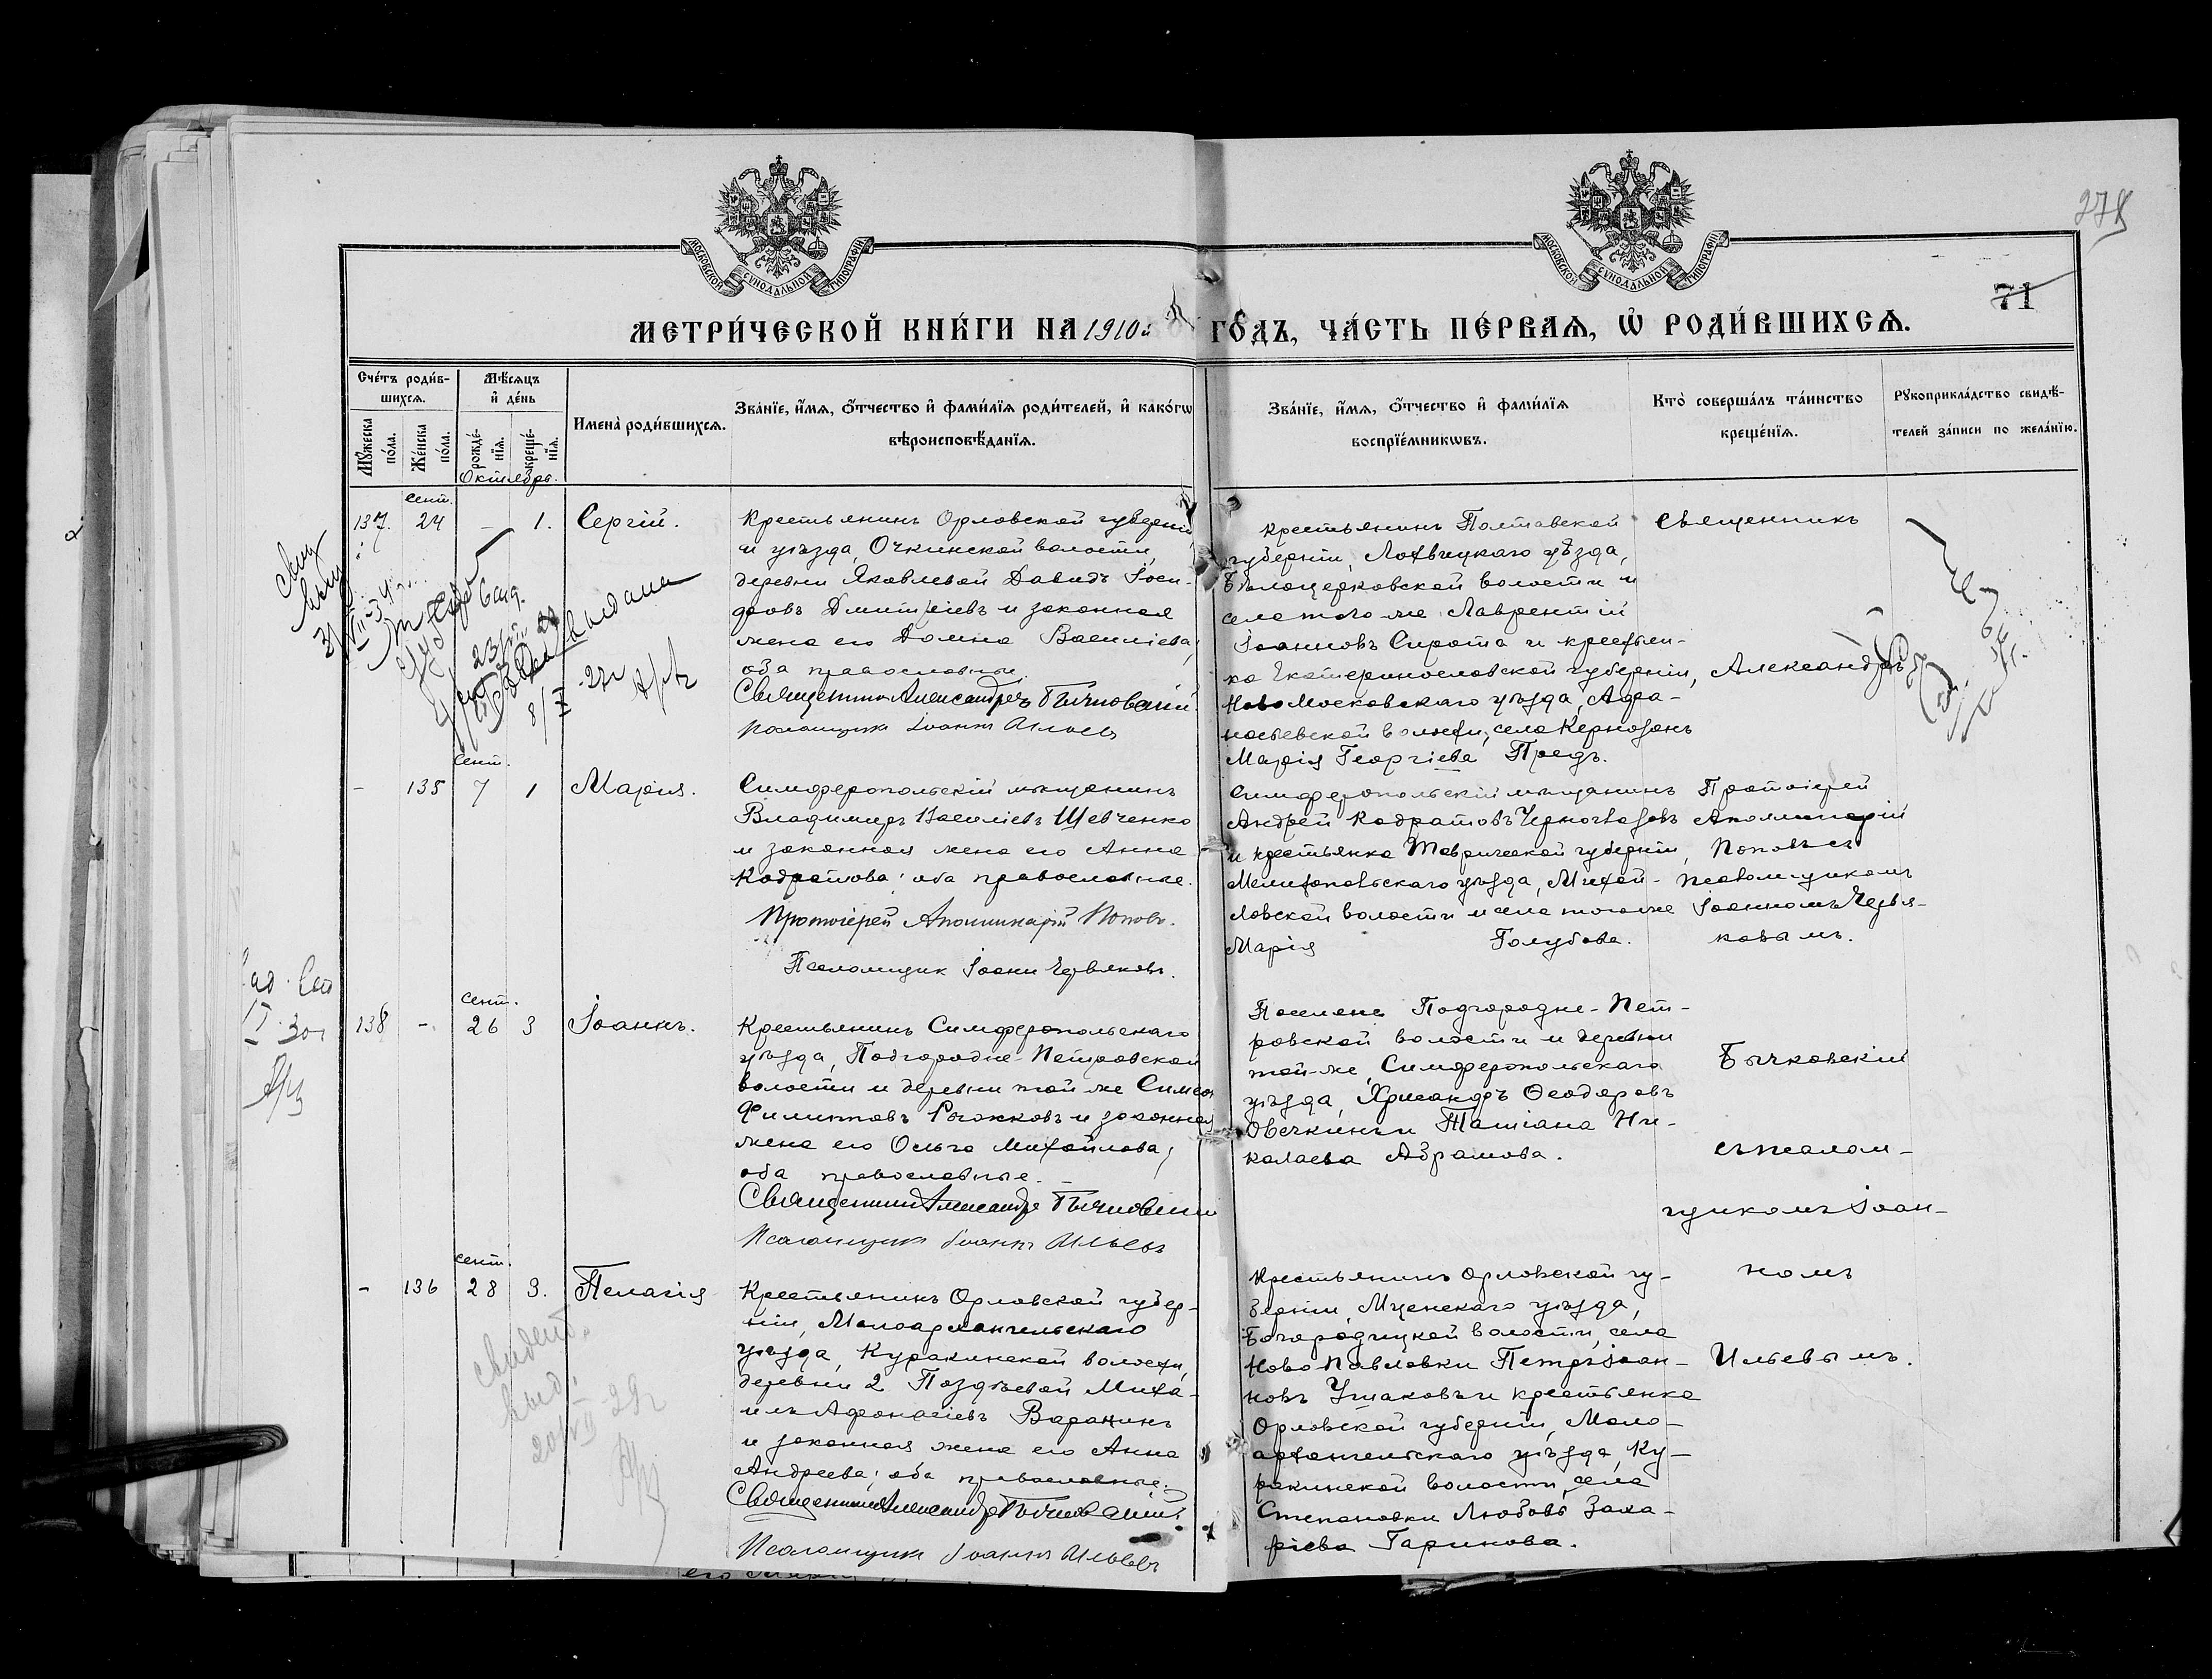 278
71
МОСКОВСКОЙ СѴНОДАЛЬНОЙ ТИПОГРАФІИ
МОСКОВСКОЙ СѴНОДАЛЬНОЙ ТИПОГРАФІИ
МЕТРИ́ЧЕСКОЙ КНИ́ГИ НА 1910 й ГО́ДЪ, ЧА́СТЬ ПЕ́РВАЯ, Ѿ РОДИ́ВШИХСЯ.
Сче́тъ роди́в-
шихся.
Му́жеска по́ла.
Же́нска по́ла.
Мѣ́сяцъ и҆ де́нь
рожде́-нїя.
креще́-нїя.
Октябрь.
Имена̀ роди́вшихся.
Зва́нїе, и҆́мя, ѻ҆́тчество и҆ фами́лїя роди́телей, и҆ како́гѡ
вѣроисповѣ́данїя.
Зва́нїе, и҆́мя, ѻ҆́тчество и҆ фами́лїя
воспрїе́мникѡвъ.
Кто̀ соверша́лъ та́инство
креще́нїя.
Рꙋкоприкла́дство свидѣ́-
телей за́писи по жела́нїю.
сент.
137. 24 – 1. Сергій.
Крестьянинъ Орловской губерніи
и уѣзда, Очкинской волости,
деревни Яковлевой Давидъ Іоси-
фовъ Дмитріевъ и законная
жена его Домна Василіева,
оба православные.
Священникъ Александръ Бычковскій.
Псаломщикъ Іоаннъ Ильевъ
Крестьянинъ Полтавской
губерніи, Лохвицкаго уѣзда,
Бѣлоцерковской волости и
села того-же Лаврентій
Іоанновъ Сирота и крестьян-
ка Екатеринославской губерніи,
Новомосковскаго уѣзда, Афа-
насьевской волости, села
Марія Георгіева
Священникъ
Александръ
сент.
– 135 7 1 Марія.
Симферопольскій мѣщанинъ
Владимиръ Василіевъ Шевченко
и законная жена его Анна
Кодратова; оба православные.
Протоіерей Аполлинарій Поповъ.
Псаломщик Іоанн Червяковъ.
Симферопольскій мѣщанинъ
Андрей Кодратовъ Черноглазовъ
и крестьянка Таврической губерніи,
Мелитопольскаго уѣзда, Михай-
ловской волости и села того-же
Марія Голубова.
Протоіерей
Аполлинарій
Поповъ съ
псаломщикомъ
Іоанномъ Червя-
ковымъ.
сент.
138 – 26 3 Іоаннъ.
Крестьянинъ Симферопольскаго
уѣзда, Подгородне-Петровской
волости и деревни той же Симеон
Филипповъ Рожковъ и законная
жена его Ольга Михайлова;
оба православные.
Священникъ Александръ Бычковскій
Псаломщикъ Іоаннъ Ильевъ
Поселяне Подгородне-Пет-
ровской волости и деревни
той-же, Симферопольскаго
уѣзда, Хрисанфъ Ѳеодоровъ
Овечкинъ и Татіана Ни-
колаева Абрамова.
Бычковскій
съ псалом-
щикомъ Іоан-
номъ
Ильевымъ.
сент.
– 136 28 3. Пелагія
Крестьянинъ Орловской губер-
ніи, Малоархангельскаго
уѣзда, Куракинской волости,
деревни 2 Поздѣевой Миха-
илъ Афанасіевъ Варанинъ
и законная жена его Анна
Андреева; оба православные.
Священникъ Александръ Бычковскій.
Псаломщикъ Іоаннъ Ильевъ
Крестьянинъ Орловской гу-
берніи, Мценскаго уѣзда,
Богородицкой волости, села
Ново Павловки Петръ Іоан-
новъ Ушаковъ и крестьянка
Орловской губерніи, Мало-
архангельскаго уѣзда, Ку-
ракинской волости, села
Степановки Любовь Заха-
ріева Гаринова.
свидет.
выд.